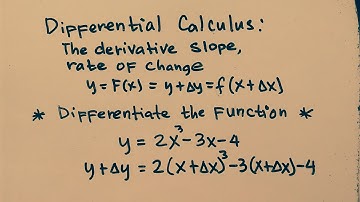 Differential Calculus:
The derivative slope,
rate of change
y = F(x) = y+Δy = f(x+Δx)
* Differentiate the Function *
y = 2x³-3x-4
y+Δy = 2(x+Δx)³-3(x+Δx)-4